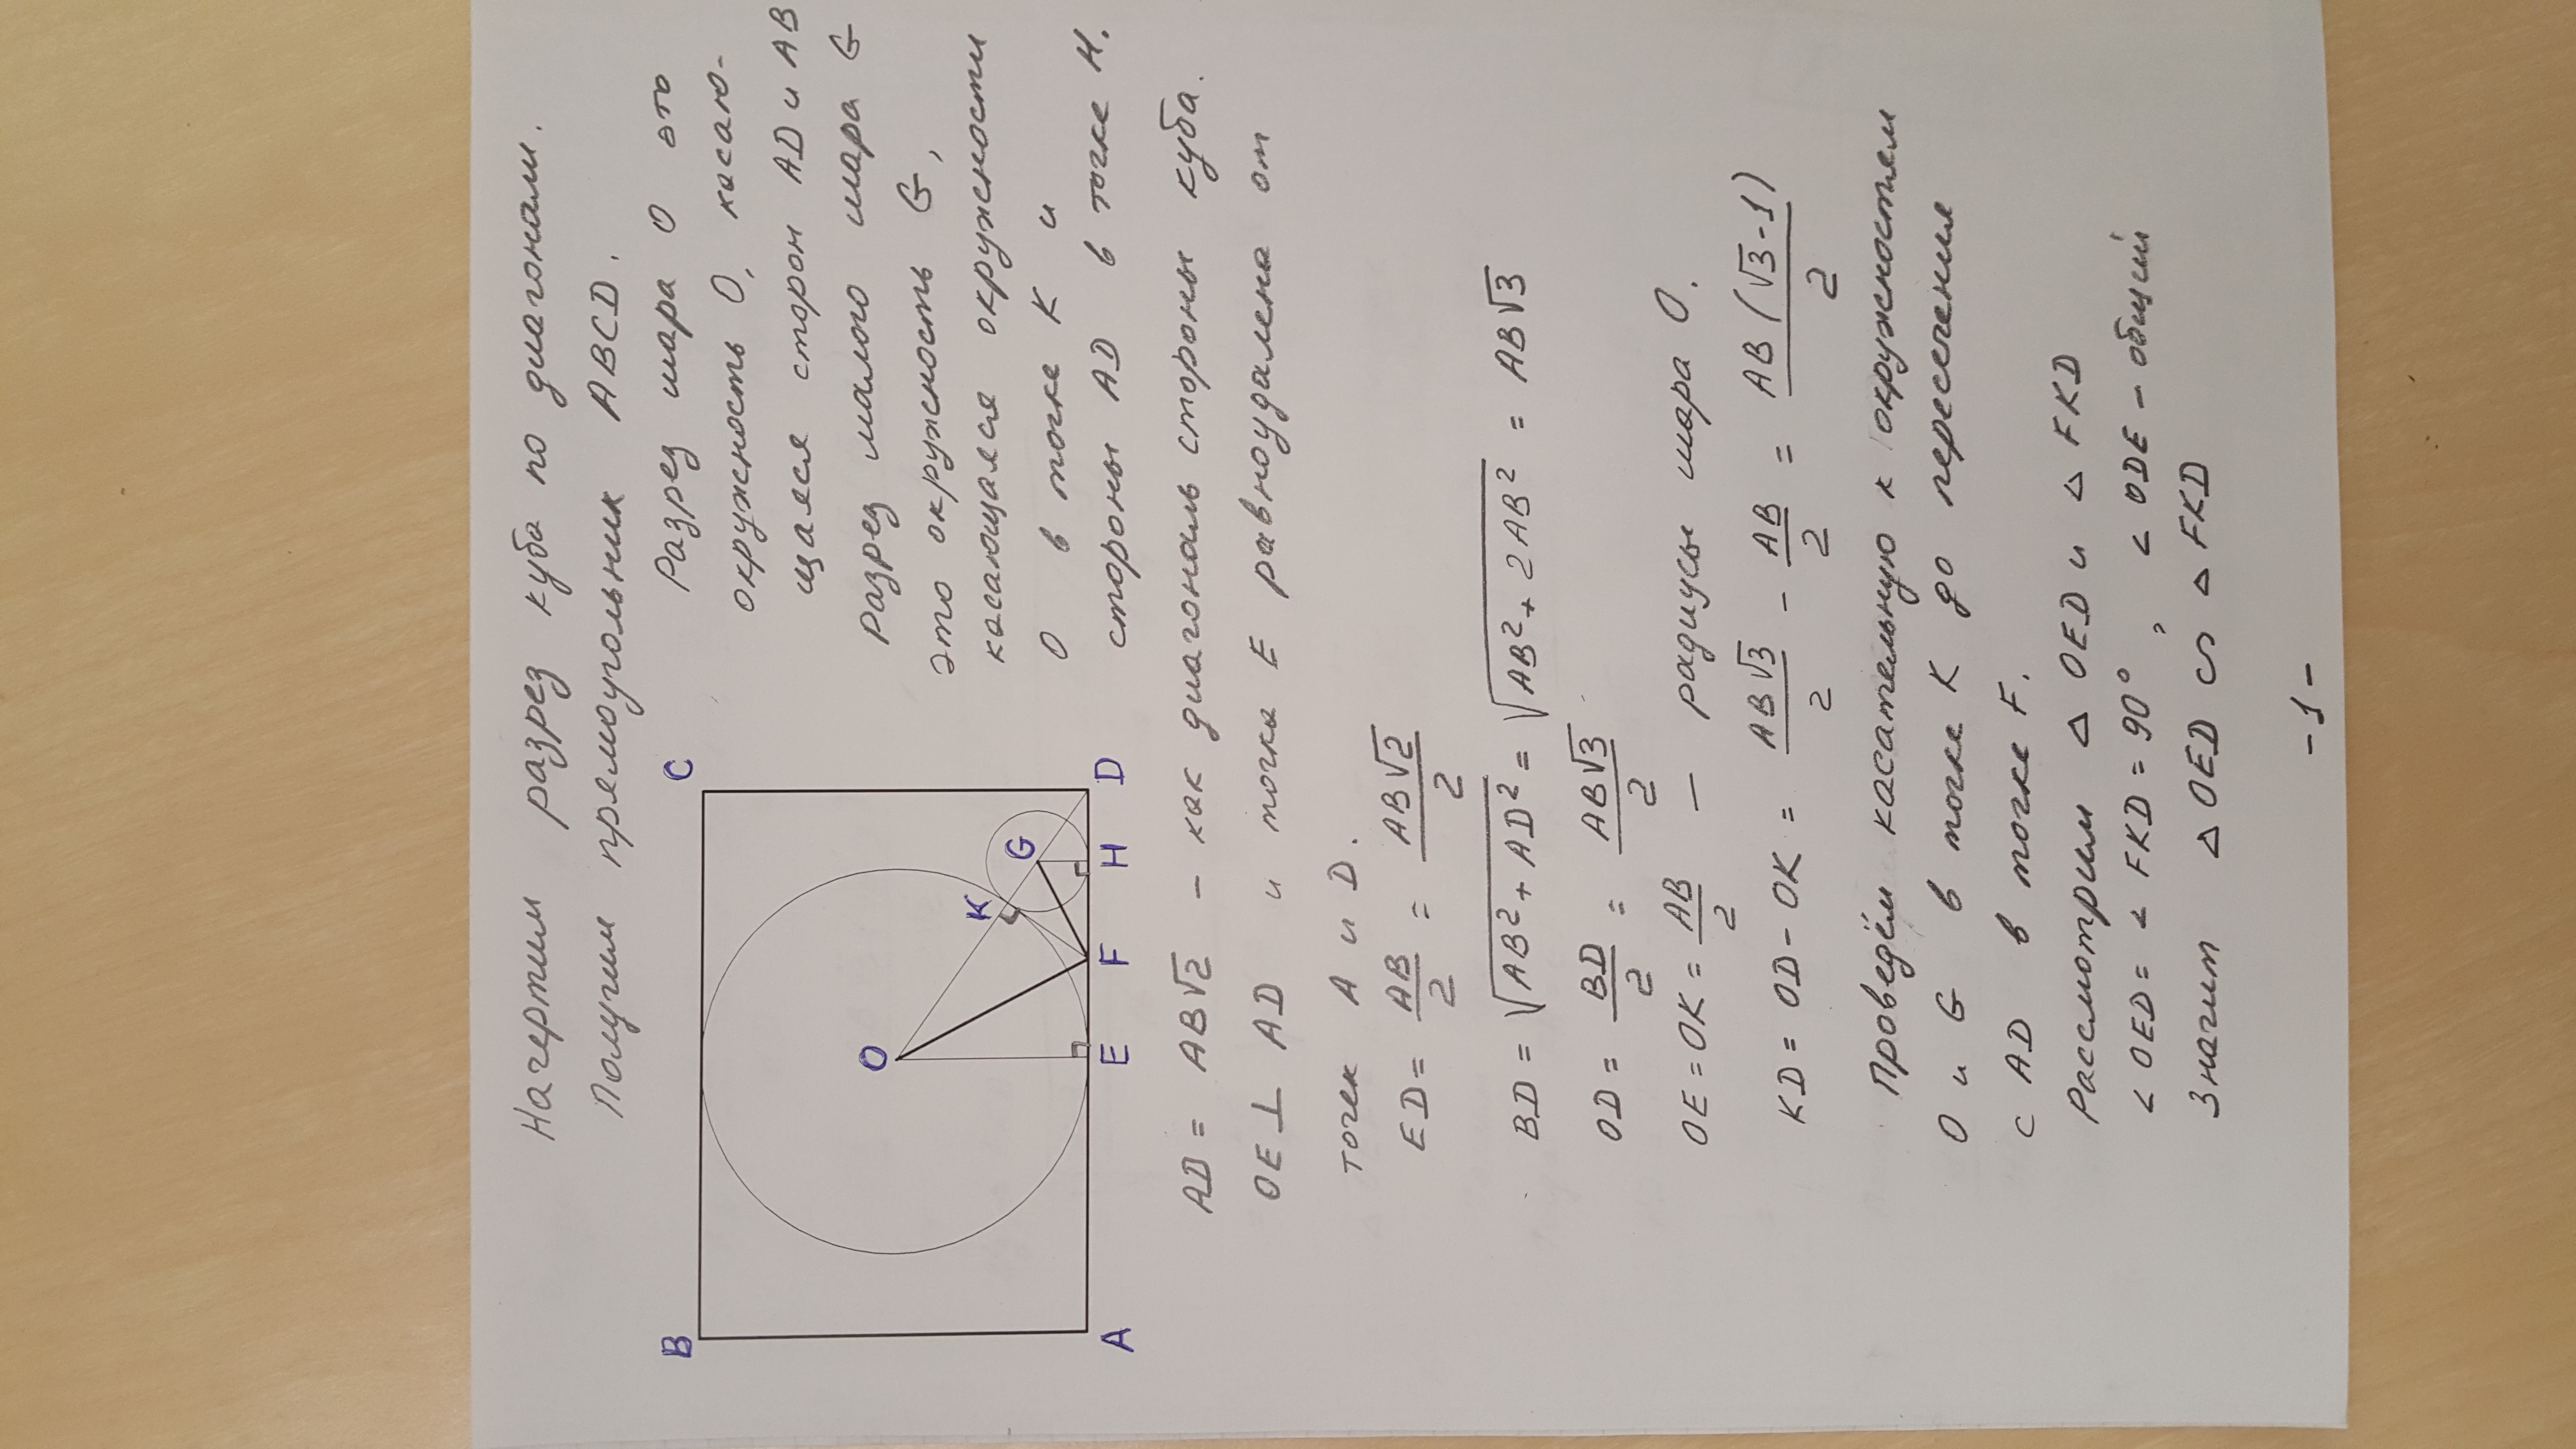 Начертим разрез куба по диагонали.
Получим прямоугольник ABCD.
B
C
O
K
G
A
E
F
H
D
Разрез шара O это
окружность O, касаю-
щаяся сторон AD и AB
Разрез малого шара G
это окружность G,
касающаяся окружности
O в точке K и
стороны AD в точке H.
AD = AB√2 - как диагональ стороны куба.
OE ⊥ AD и точка E равноудалена от
точек A и D.
ED = AB/2 = AB√2/2
BD = √(AB² + AD²) = √(AB² + 2AB²) = AB√3
OD = BD/2 = AB√3/2
OE = OK = AB/2 — радиусы шара O.
KD = OD - OK = AB√3/2 - AB/2 = AB(√3-1)/2
Проведём касательную к окружностям
O и G в точке K до пересечения
с AD в точке F.
Рассмотрим △ OED и △ FKD
∠ OED = ∠ FKD = 90°, ∠ ODE - общий
Значит △ OED ∽ △ FKD
- 1 -